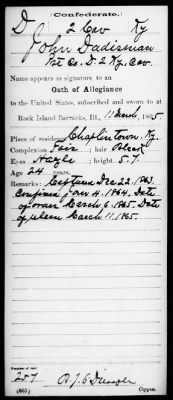 Confederate.
D 2 Cav Ky
John Dadisman
Pvt Co. D. 2 Ky. Cav.
Name appears as signature to an
Oath of Allegiance
to the United States, subscribed and sworn to at
Rock Island Barracks, Ill., 11 March, 1865
Place of residence Chaplintown, Ky.
Complexion Fair; hair Black
Eyes Hazle; height 5.7.
Age 24 years.
Remarks: Captured Dec 22. 1863.
Confined Jan 4. 1864. Date
of order March 6. 1865. Date
of release March 11. 1865.
Number of roll:
257
(665) Copyist.